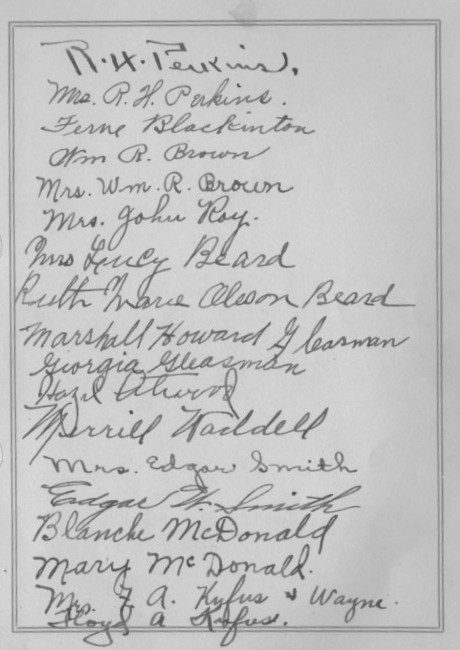 R. H. Perkins.
Mrs. R. H. Perkins.
Ferne Blackinton
Wm R. Brown
Mrs. Wm. R. Brown
Mrs. John Roy.
Mrs Lucy Beard
Ruth Marie Oleson Beard
Marshall Howard Gleasman
Georgia Gleasman
Hazel Atwood
Merrill Waddell
Mrs. Edgar Smith
Edgar W. Smith
Blanche McDonald
Mary McDonald.
Mrs. F. A. Kufus & Wayne.
Floyd A Kufus.